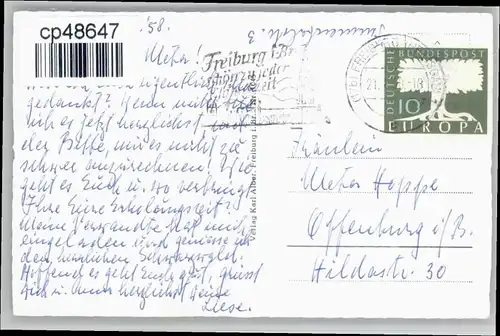 cp48647
58.
3
Meta!
Freiburg i. Br.
schön zu jeder
Jahreszeit
DEUTSCHE BUNDESPOST
10
EUROPA
gedankt?
ich es jetzt herzlichst
der Bitte, mir es nicht zu
schwer anzurechnen! Wie
geht es Euch u. wo verbringt
Ihr Eure Erholungszeit?
Meine Verwandte hat mich
eingeladen und genieße ich
den herrlichen Schwarzwald.
Hoffend es geht Euch gut, grüsst
Dich u. Anna herzlichst Deine
Liese.
Verlag Karl Alber, Freiburg i. Br.
Fräulein
Meta Hoppe
Offenburg i/B.
Hildastr. 30